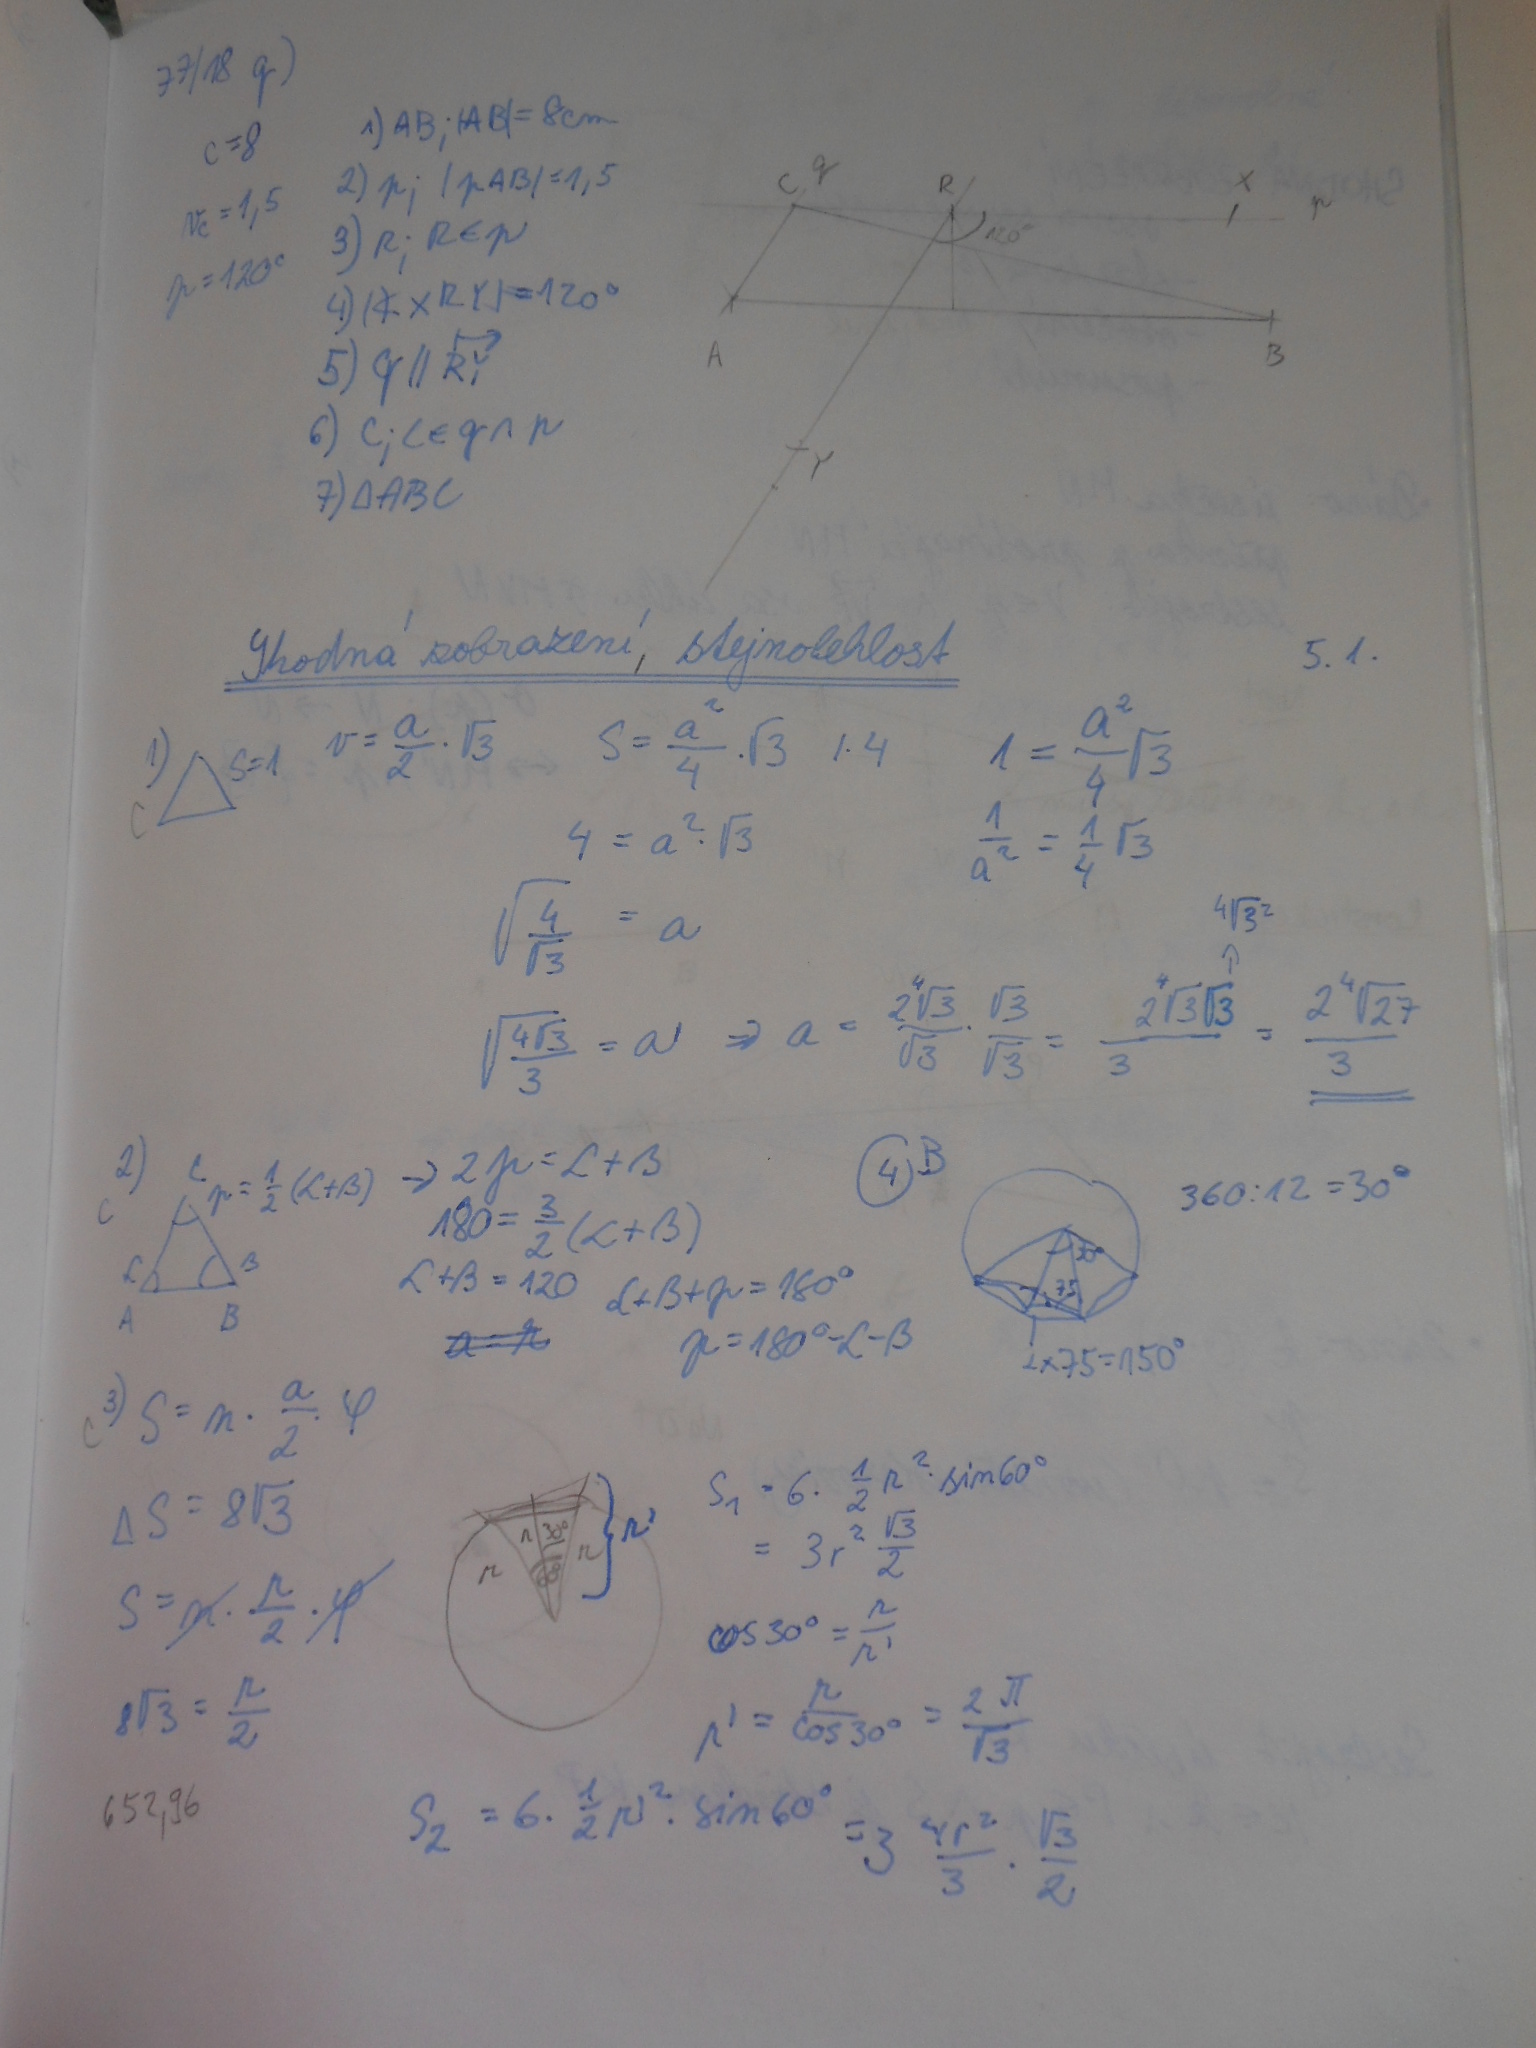 77/18 g)
c=8
vc=1,5
γ=120°
1) AB; |AB|=8cm
2) p; |pAB|=1,5
3) R; R∈p
4) |∢XRY|=120°
5) q // RY
6) C; C∈q∩p
7) △ABC
C q R X p
120°
A B
Y
Shodná zobrazení, stejnolehlost 5.1.
1) S=1 v=a/2·√3 S=a²/4·√3 /·4 1=a²/4√3
C
4=a²·√3 1/a²=1/4√3
√(4/√3)=a
4√3²
√(4√3/3)=a ⇒ a=2⁴√3/√3·√3/√3=2⁴√3√3/3=2⁴√27/3
2) C γ=1/2(α+β) → 2γ=α+β
C
180=3/2(α+β)
α+β=120 α+β+γ=180°
γ=180°-α-β
α β
A B
4 B 360:12=30°
30°
75
2x75=150°
3) S=n·a/2·φ
C
△S=8√3
S=n·r/2·φ
8√3=r/2
652,96
r r 30° r r'
60°
S₁=6·1/2r²·sin60°
=3r²√3/2
cos30°=r/r'
r'=r/cos30°=2r/√3
S₂=6·1/2r'²·sin60°=3 4r²/3·√3/2